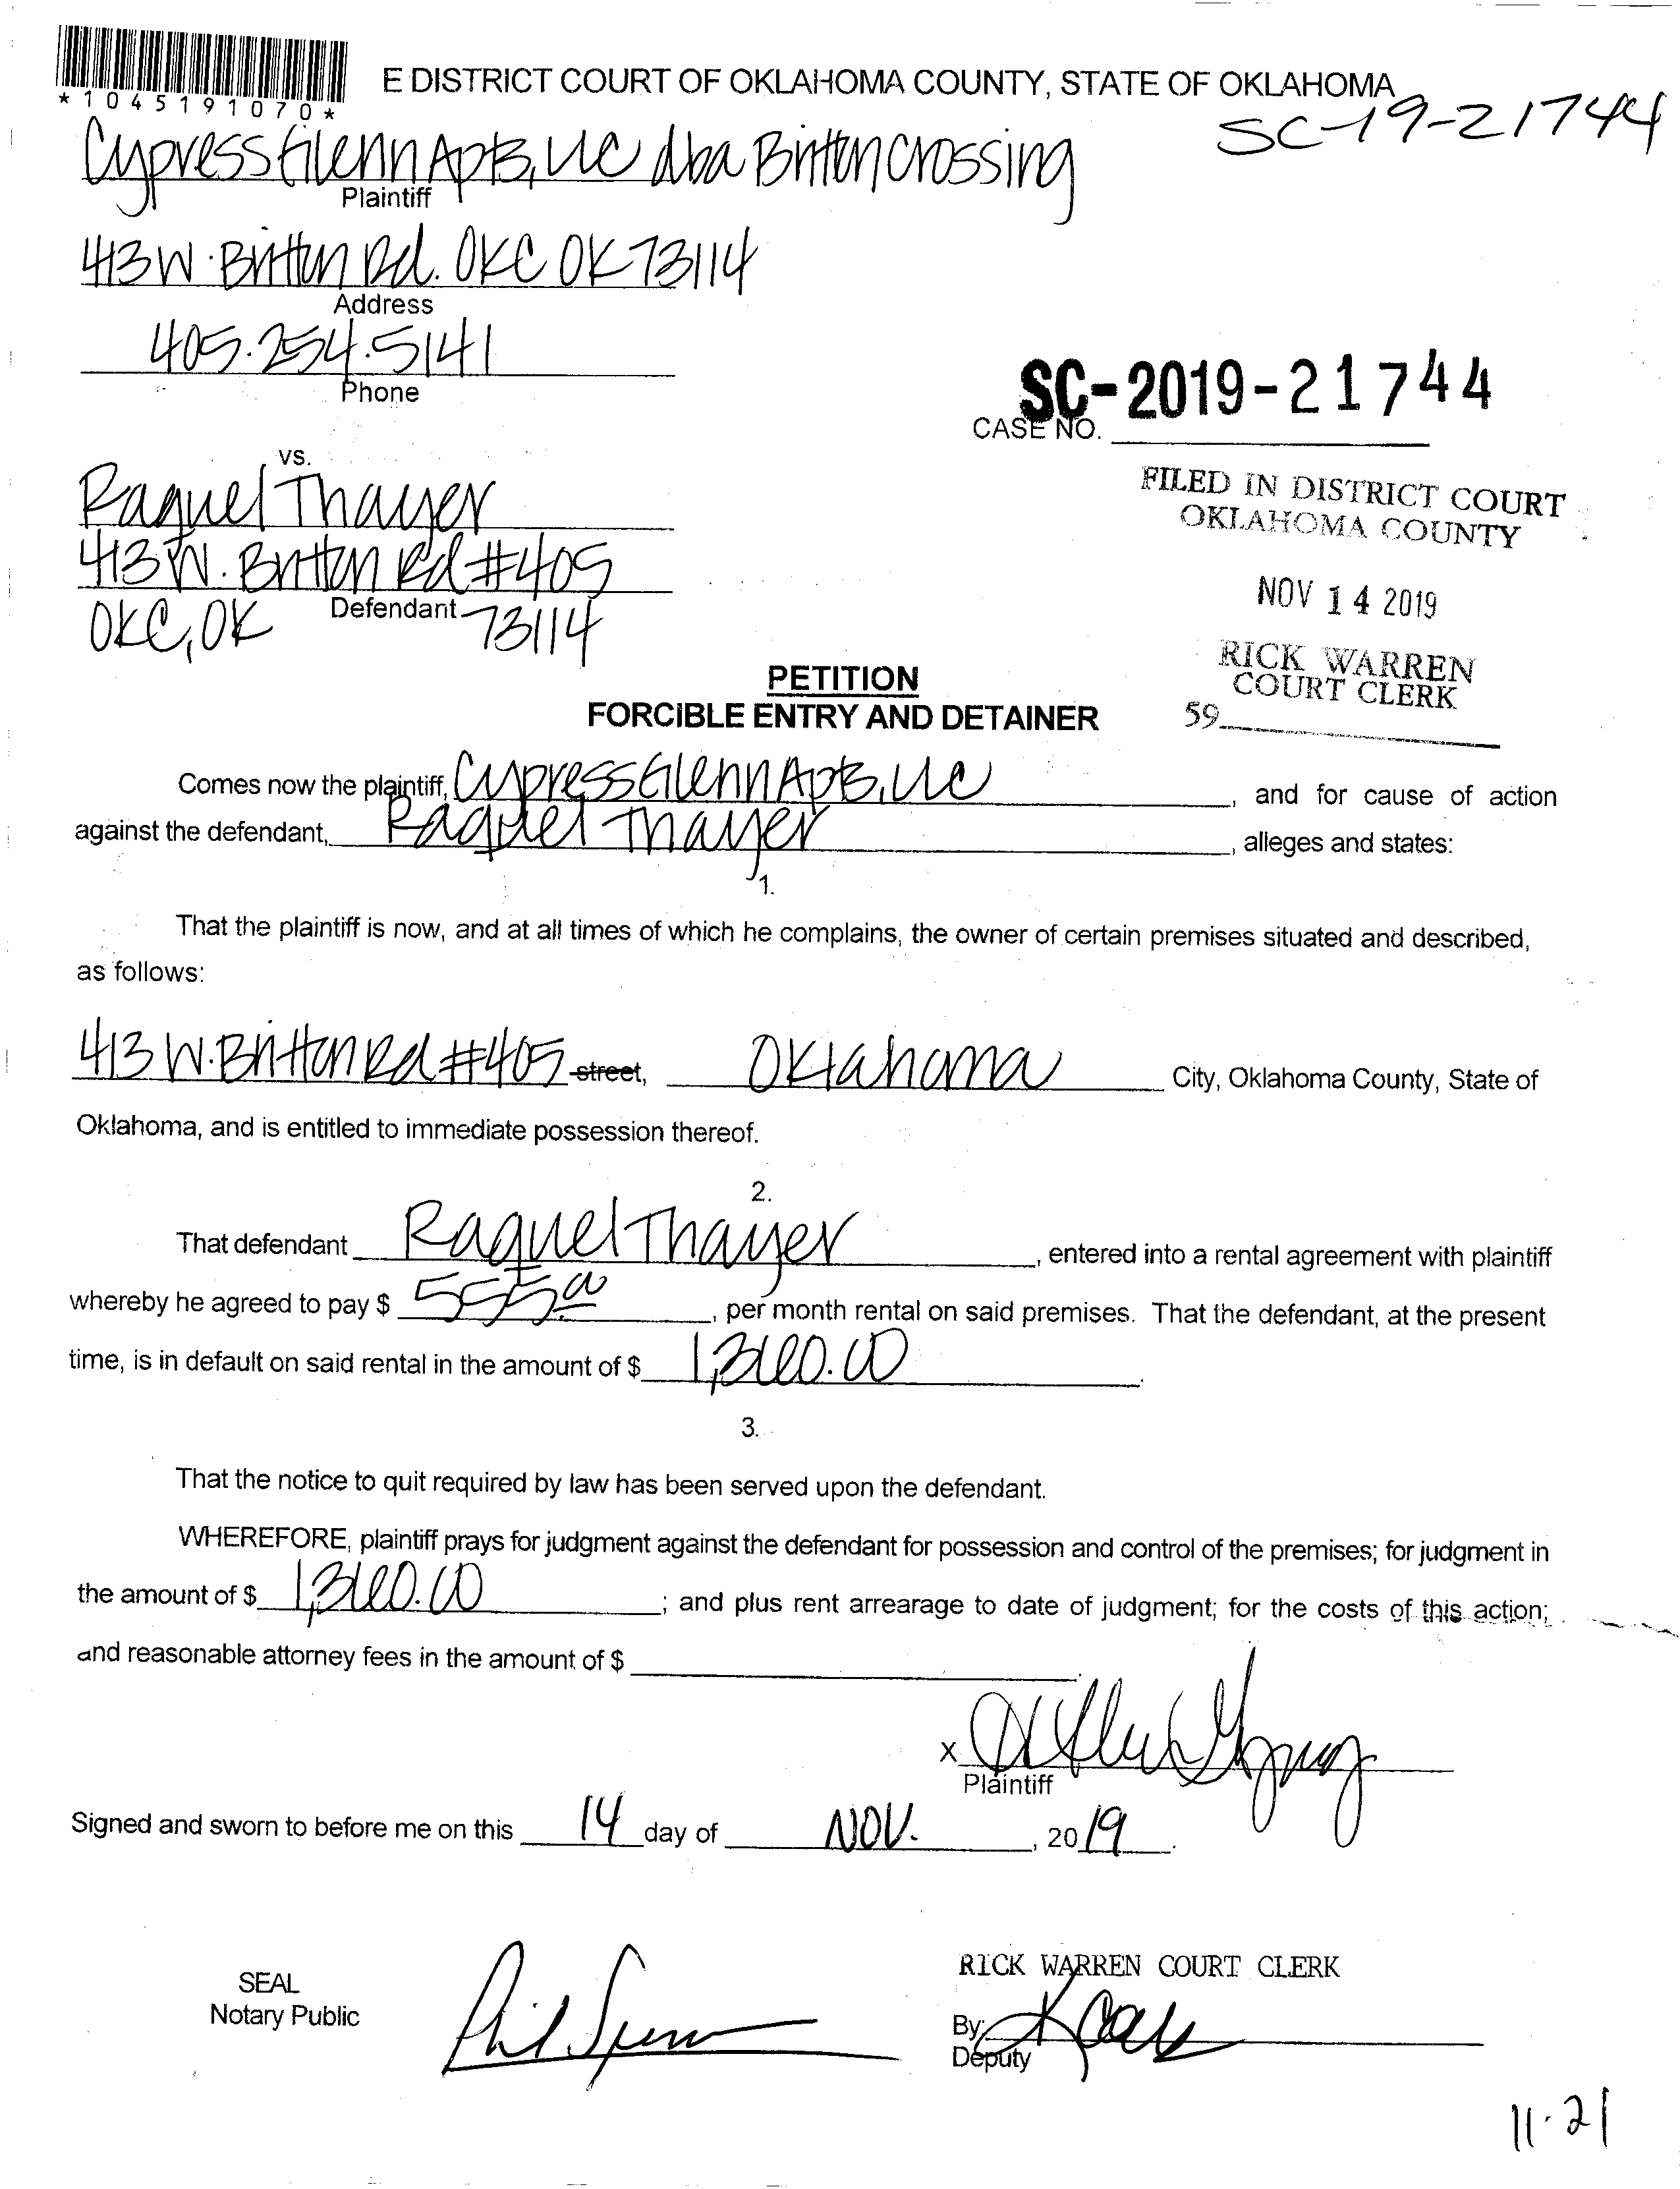 *1045191070*
E DISTRICT COURT OF OKLAHOMA COUNTY, STATE OF OKLAHOMA
SC-19-21744
Cypress Glenn Apts, LLC dba Britton Crossing
Plaintiff
413 W. Britton Rd. OKC OK 73114
Address
405.254.5141
Phone
SC-2019-21744
CASE NO.
vs.
FILED IN DISTRICT COURT
OKLAHOMA COUNTY
Raquel Thayer
413 W. Britton Rd #405
NOV 14 2019
OKC, OK Defendant 73114
RICK WARREN
COURT CLERK
59
PETITION
FORCIBLE ENTRY AND DETAINER
Comes now the plaintiff, Cypress Glenn Apts, LLC, and for cause of action
against the defendant, Raquel Thayer, alleges and states:
1.
That the plaintiff is now, and at all times of which he complains, the owner of certain premises situated and described,
as follows:
413 W. Britton Rd #405 street, Oklahoma City, Oklahoma County, State of
Oklahoma, and is entitled to immediate possession thereof.
2.
That defendant Raquel Thayer, entered into a rental agreement with plaintiff
whereby he agreed to pay $ 555.00, per month rental on said premises. That the defendant, at the present
time, is in default on said rental in the amount of $ 1,360.00.
3.
That the notice to quit required by law has been served upon the defendant.
WHEREFORE, plaintiff prays for judgment against the defendant for possession and control of the premises; for judgment in
the amount of $ 1,360.00; and plus rent arrearage to date of judgment; for the costs of this action;
and reasonable attorney fees in the amount of $
x
Plaintiff
Signed and sworn to before me on this 14 day of NOV., 2019.
RICK WARREN COURT CLERK
SEAL
Notary Public
By:
Deputy
11-21